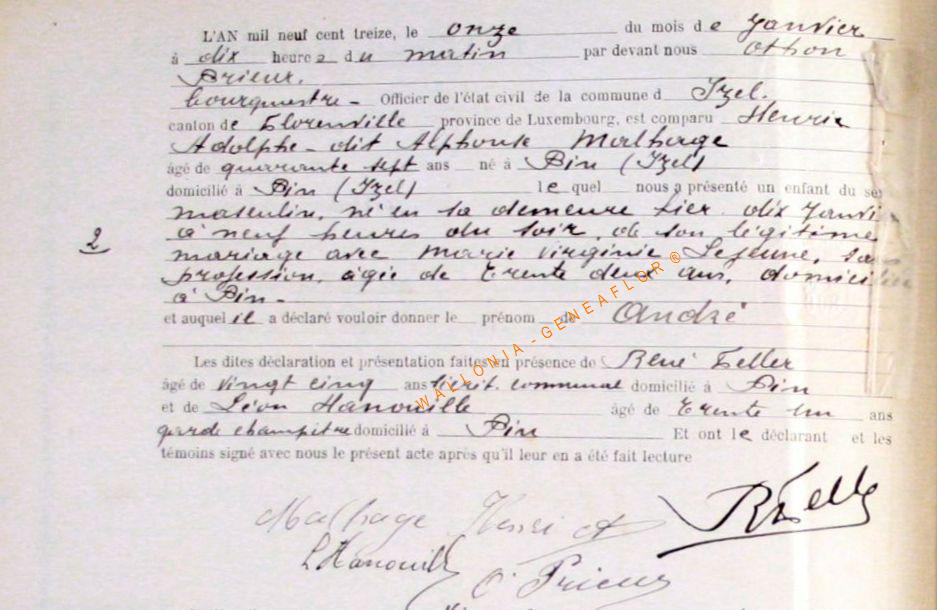 L'AN mil neuf cent treize, le onze du mois de Janvier
à dix heures du matin par devant nous Othon
Prieur,
bourgmestre - Officier de l'état civil de la commune d Izel.
canton de Florenville province de Luxembourg, est comparu Henri
Adolphe - dit Alphonse Malhage
âgé de quarante sept ans né à Pin (Izel)
domicilié à Pin (Izel) lequel nous a présenté un enfant du sex
masculin, né en sa demeure hier dix Janvi
à neuf heures du soir, de son légitime
mariage avec Marie Virginie Lejeune, sa
profession, âgée de trente deux ans, domicili
à Pin -
2
et auquel il a déclaré vouloir donner le prénom de André
Les dites déclaration et présentation faites en présence de René Feller
âgé de vingt cinq ans communal domicilié à Pin
et de Léon Hanouille âgé de trente un ans
garde champêtre domicilié à Pin Et ont le déclarant et les
témoins signé avec nous le présent acte après qu'il leur en a été fait lecture
WALLONIA-GENEAFLOR®
Malhage Henri A
R Felle
L Hanouill
O. Prieur